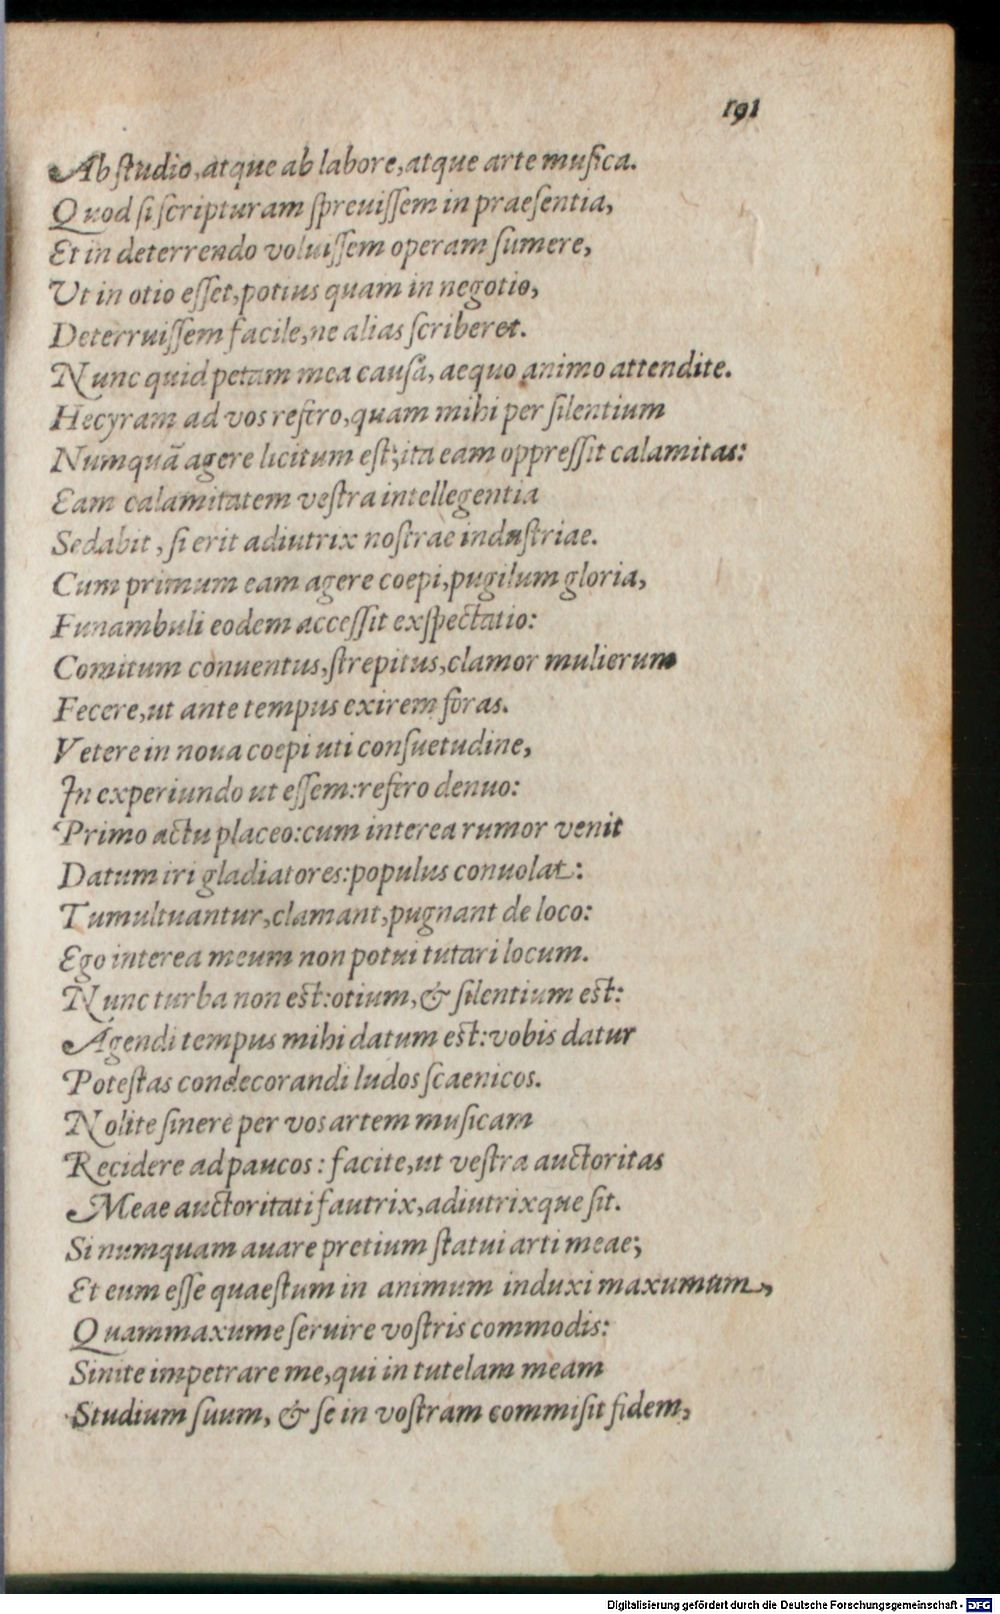 191
Ab studio, atque ab labore, atque arte musica.
Quod si scripturam spreuissem in praesentia,
Et in deterrendo voluissem operam sumere,
Ut in otio esset, potius quam in negotio,
Deterruissem facile, ne alias scriberet.
Nunc quid petam mea causa, aequo animo attendite.
Hecyram ad vos refero, quam mihi per silentium
Numquã agere licitum est; ita eam oppressit calamitas:
Eam calamitatem vestra intellegentia
Sedabit, si erit adiutrix nostrae industriae.
Cum primum eam agere coepi, pugilum gloria,
Funambuli eodem accessit exspectatio:
Comitum conuentus, strepitus, clamor mulierum
Fecere, ut ante tempus exirem foras.
Vetere in noua coepi uti consuetudine,
In experiundo ut essem: refero denuo:
Primo actu placeo: cum interea rumor venit
Datum iri gladiatores: populus conuolat:
Tumultuantur, clamant, pugnant de loco:
Ego interea meum non potui tutari locum.
Nunc turba non est: otium, & silentium est:
Agendi tempus mihi datum est: vobis datur
Potestas condecorandi ludos scaenicos.
Nolite sinere per vos artem musicam
Recidere ad paucos: facite, ut vestra auctoritas
Meae auctoritati fautrix, adiutrixque sit.
Si numquam auare pretium statui arti meae;
Et eum esse quaestum in animum induxi maxumum,
Quammaxume seruire vostris commodis:
Sinite impetrare me, qui in tutelam meam
Studium suum, & se in vostram commisit fidem,
Digitalisierung gefördert durch die Deutsche Forschungsgemeinschaft - DFG